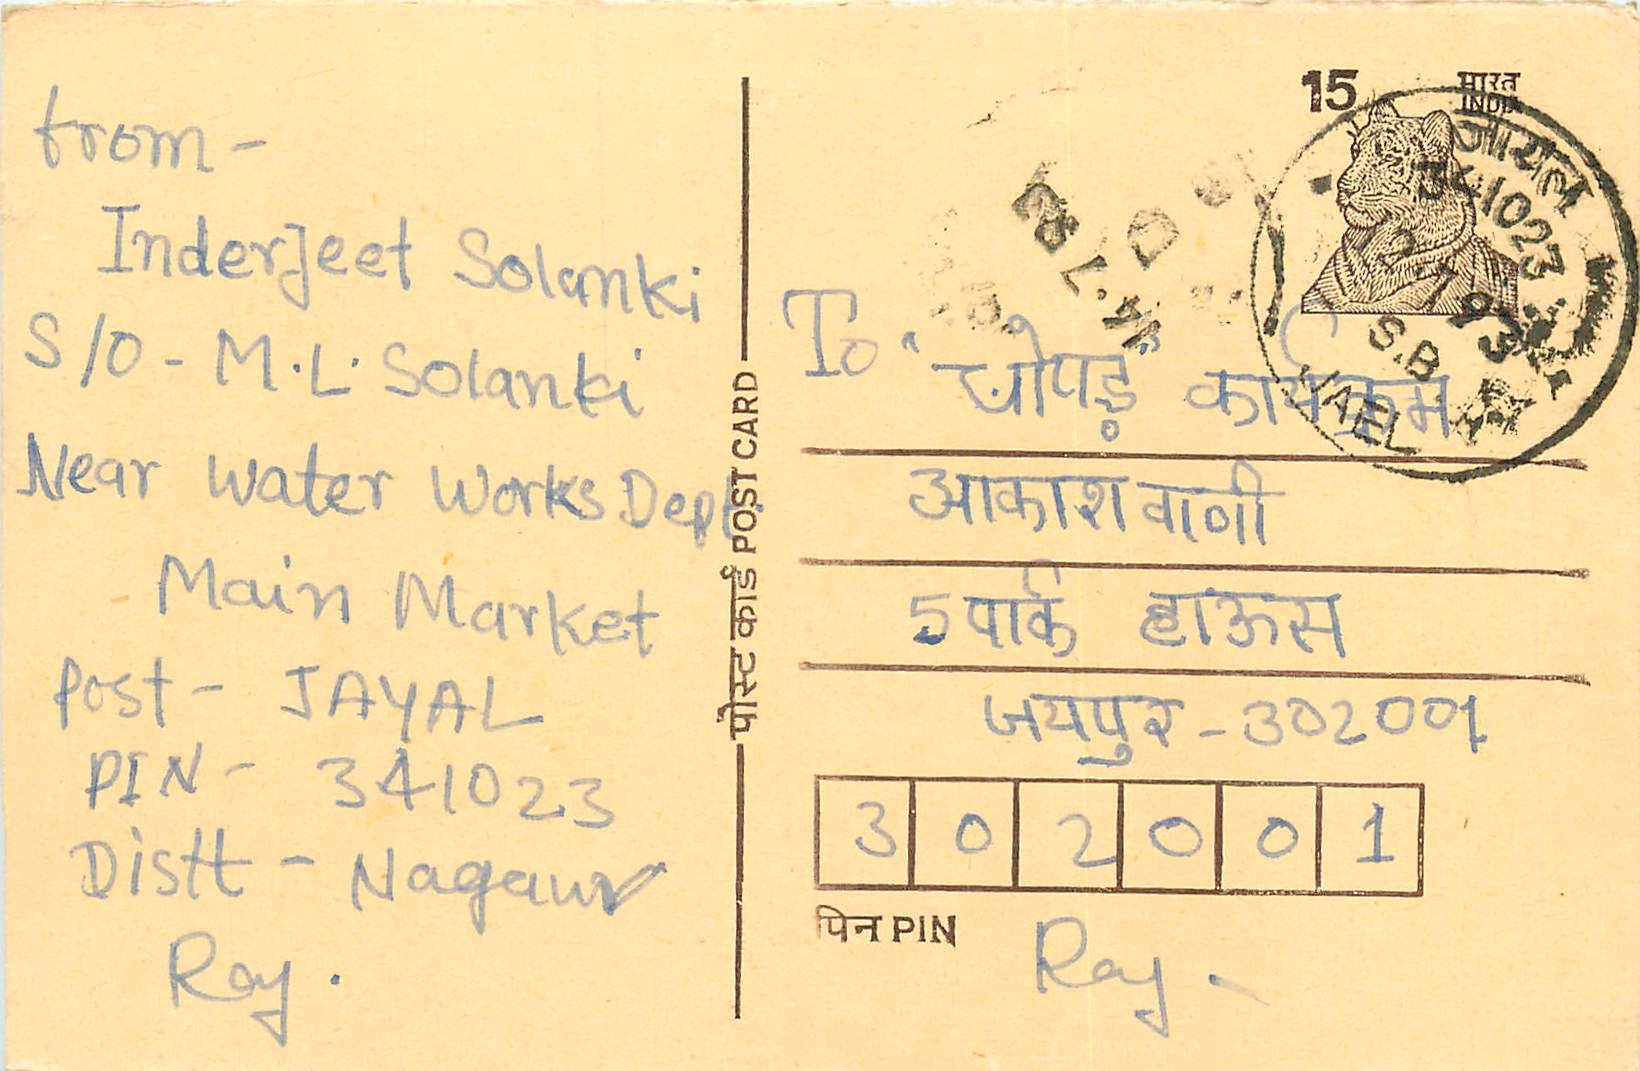 from-
Inderjeet Solanki
S/O - M.L. Solanki
Near Water Works Dept.
Main Market
Post - JAYAL
PIN - 341023
Distt - Nagaur
Raj.
पोस्ट कार्ड POST CARD
15
भारत
INDIA
जायल
341023
S.B
JAEL
14.7.93
To "चोपड़" कार्यक्रम
आकाशवाणी
5 पार्क हाऊस
जयपुर - 302001
302001
पिन PIN
Raj -